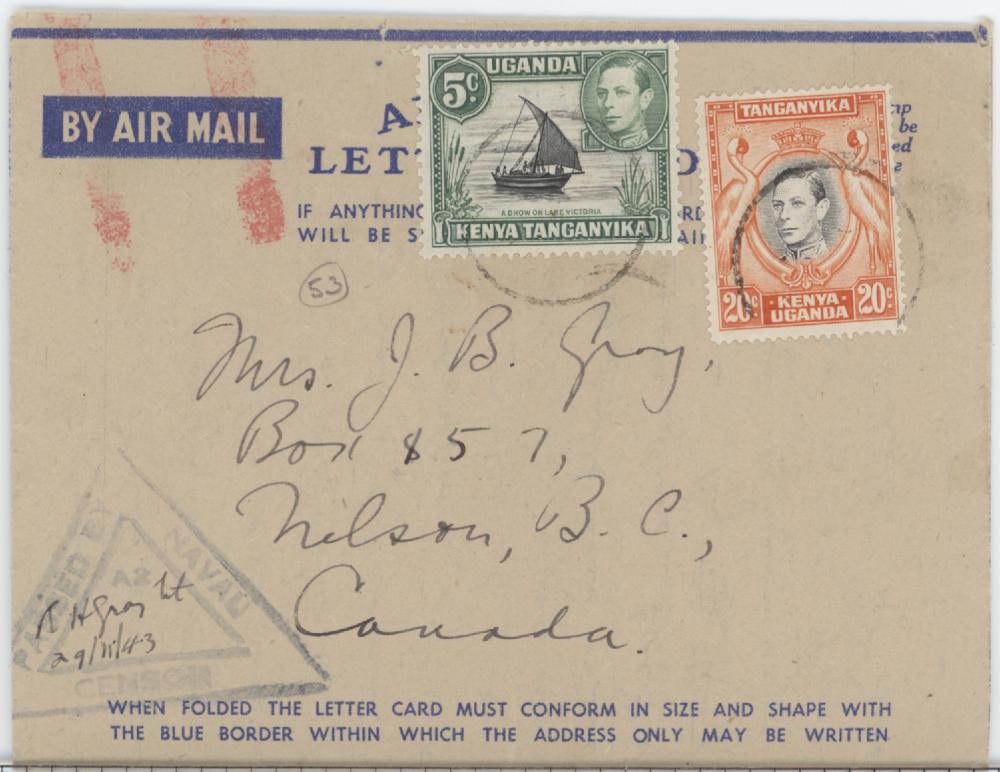 BY AIR MAIL
UGANDA
5c
A DHOW ON LAKE VICTORIA
KENYA TANGANYIKA
TANGANYIKA
20c KENYA UGANDA 20c
be
LET
IF ANYTHING
WILL BE
53
Mrs. J. B. Gray,
Box 857,
Nelson, B. C.,
Canada.
PASSED BY
NAVAL
CENSOR
A2
Lt
29/11/43
WHEN FOLDED THE LETTER CARD MUST CONFORM IN SIZE AND SHAPE WITH
THE BLUE BORDER WITHIN WHICH THE ADDRESS ONLY MAY BE WRITTEN